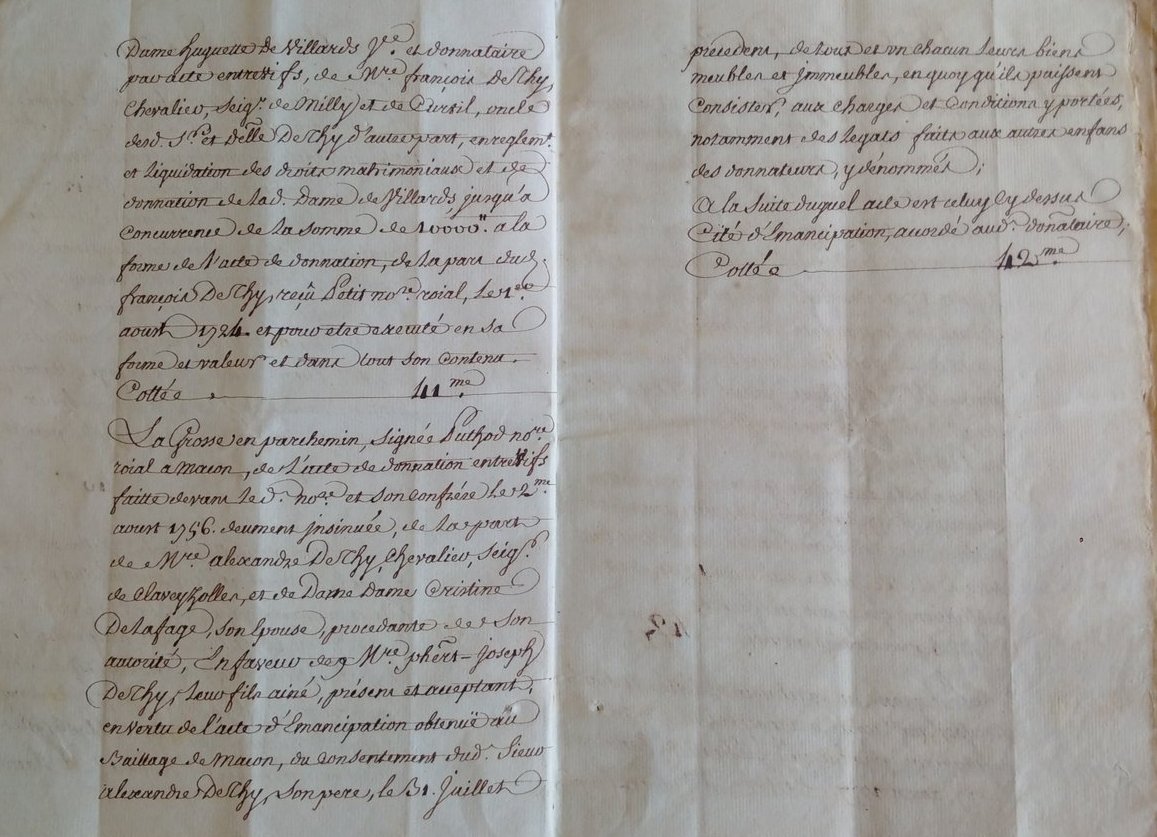 Dame huguette de Villards V.e et donnataire
par acte entrevifs, de M.re françois DeThy,
Chevalier, seig.r de Milly et de Curtil, oncle
desd. S.rs et d.elle DeThy d'autre part, en reglem.t
et liquidation des droits matrimoniaux et de
donnation de lad. Dame de Villards, jusqu'a
concurrence de la somme de 10000.tt a la
forme de l'acte de donnation, de la part dud.
françois DeThy, reçû Petit no.re roial, le 1.er
aoust 1724. et pour etre executé en sa
forme et valeur et dans tout son contenu.
Cottée 41.me
La Grosse en parchemin, signée Puthod no.re
roial a macon, de l'acte de donnation entrevifs
faitte devant le d. no.re et son confrére le 2.me
aoust 1756. deument jnsinuée, de la part
de M.re alexandre DeThy, Chevalier, seig.r
de Claveyzolles, et de Dame Dame Cristine
Delafage, son Epouse, procedante de son
autorité, En faveur de M.re phért-joseph
DeThy, leur fils ainé, présent et acceptant,
en vertu de l'acte d'Emancipation obtenuë au
Baillage de macon, du consentement dud. Sieur
alexandre DeThy, son pere, le 31. juillet
précedent, de tous et vn chacun leurs biens
meubles et jmmeubles, en quoy qu'ils puissent
consister, aux charges et conditions y portées,
notamment des legats faits aux autres enfans
des donnateurs, y dénommés;
a la suite duquel acte est celuy cy dessus
Cité d'Emancipation, accordé aud. donataire,
Cottée 42.me